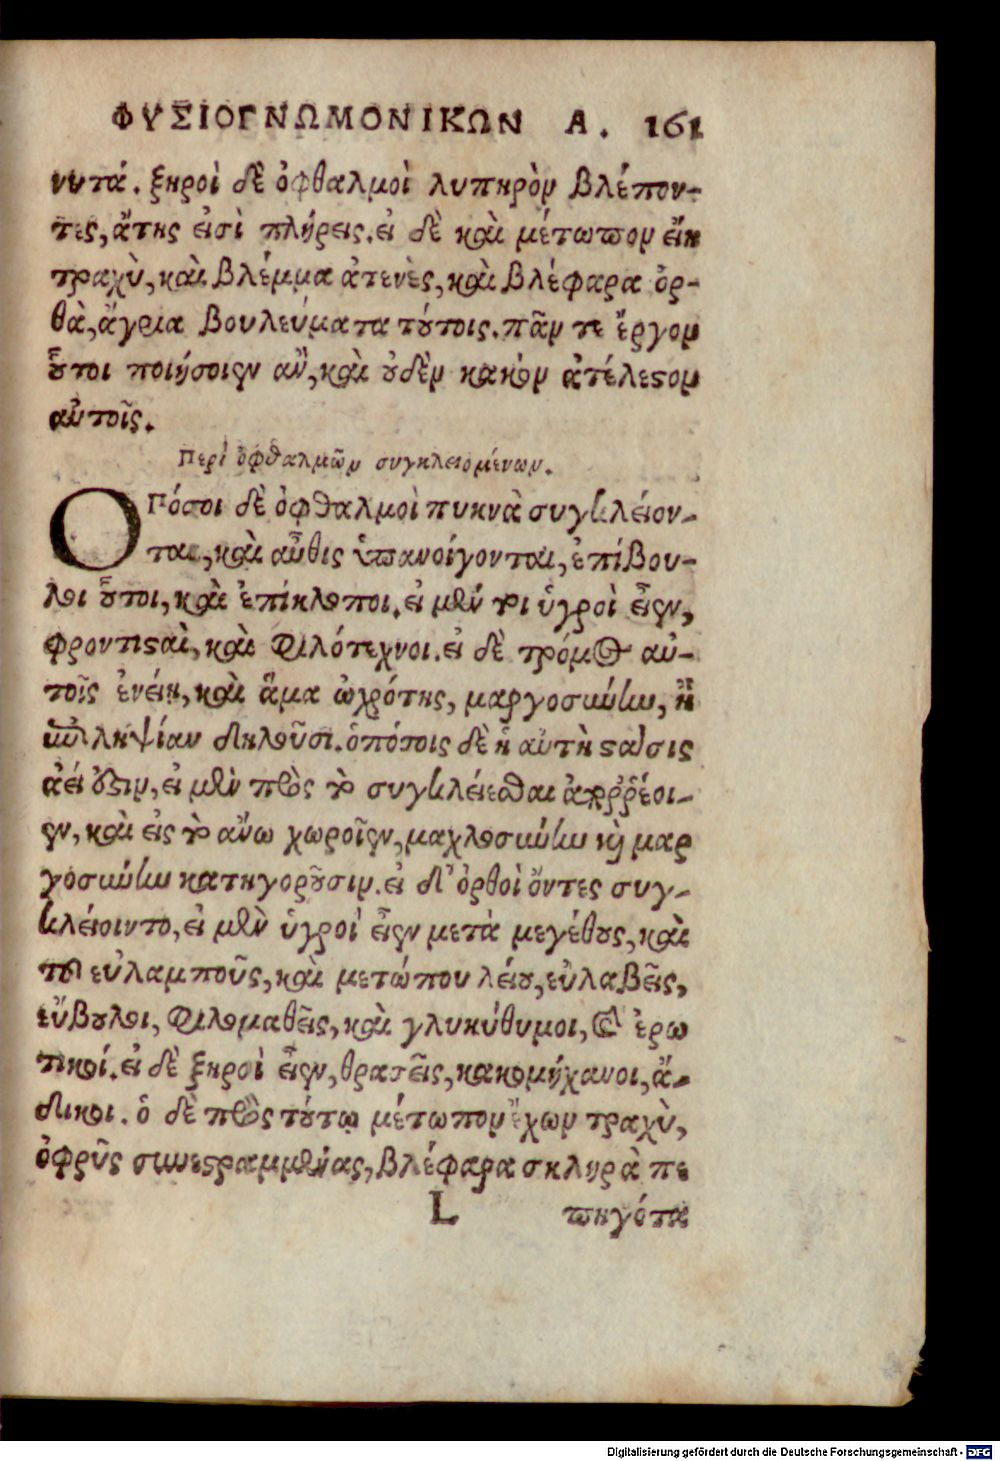 ΦΥΣΙΟΓΝΩΜΟΝΙΚΩΝ Α. 161
νυτά. ξηροὶ δὲ ὀφθαλμοὶ λυπηρὸν βλέπον-
τες, ἄτης εἰσὶ πλήρεις. εἰ δὲ καὶ μέτωπον εἴη
τραχὺ, καὶ βλέμμα ἀτενὲς, καὶ βλέφαρα ὀρ-
θὰ, ἄγρια βουλεύματα τούτοις. πᾶν τε ἔργον
οὗτοι ποιήσοιεν ἂν, καὶ οὐδὲν κακὸν ἀτέλεστον
αὐτοῖς.
Περὶ ὀφθαλμῶν συγκλειομένων.
ΟΠόσοι δὲ ὀφθαλμοὶ πυκνὰ συγκλείον-
ται, καὶ αὖθις ὑπανοίγονται, ἐπίβου-
λοι οὗτοι, καὶ ἐπίκλοποι. εἰ μέν τοι ὑγροὶ εἶεν,
φροντισταὶ, καὶ φιλότεχνοι. εἰ δὲ τρόμος αὐ-
τοῖς ἐνείη, καὶ ἅμα ὠχρότης, μαργοσύνην, ἢ
ἐπιληψίαν δηλοῦσι. ὁπόσοις δὲ ἡ αὐτὴ στάσις
ἀεί ἐστιν, εἰ μὲν πρὸς τὸ συγκλείεσθαι ἀπορρέοι-
εν, καὶ εἰς τὸ ἄνω χωροῖεν, μαχλοσύνην καὶ μαρ
γοσύνην κατηγοροῦσιν. εἰ δ' ὀρθοὶ ὄντες συγ-
κλείοιντο, εἰ μὲν ὑγροί εἶεν μετὰ μεγέθους, καὶ
τοῦ εὐλαμποῦς, καὶ μετώπου λείου, εὐλαβεῖς,
εὔβουλοι, φιλομαθεῖς, καὶ γλυκύθυμοι, καὶ ἐρω
τικοί. εἰ δὲ ξηροὶ εἶεν, θρασεῖς, κακομήχανοι, ἄ-
δικοι. ὁ δὲ πρὸς τούτῳ μέτωπον ἔχων τραχὺ,
ὀφρῦς συνεστραμμένας, βλέφαρα σκληρὰ πε
L πηγότα
Digitalisierung gefördert durch die Deutsche Forschungsgemeinschaft - DFG